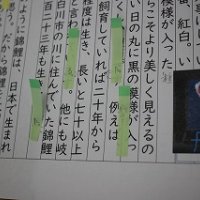 番、紅白。い
模様が入った
こそより美しく見えるの
い日の丸に黒の模様が入っ
例えば
飼育していれば二十年から
程度は生き、長いと七十以上
と言わ
。他にも岐
白川市の川に住んでいた錦鯉
百二十三年も生き
ように錦鯉は、日本で生まれ
思う。だから錦鯉を